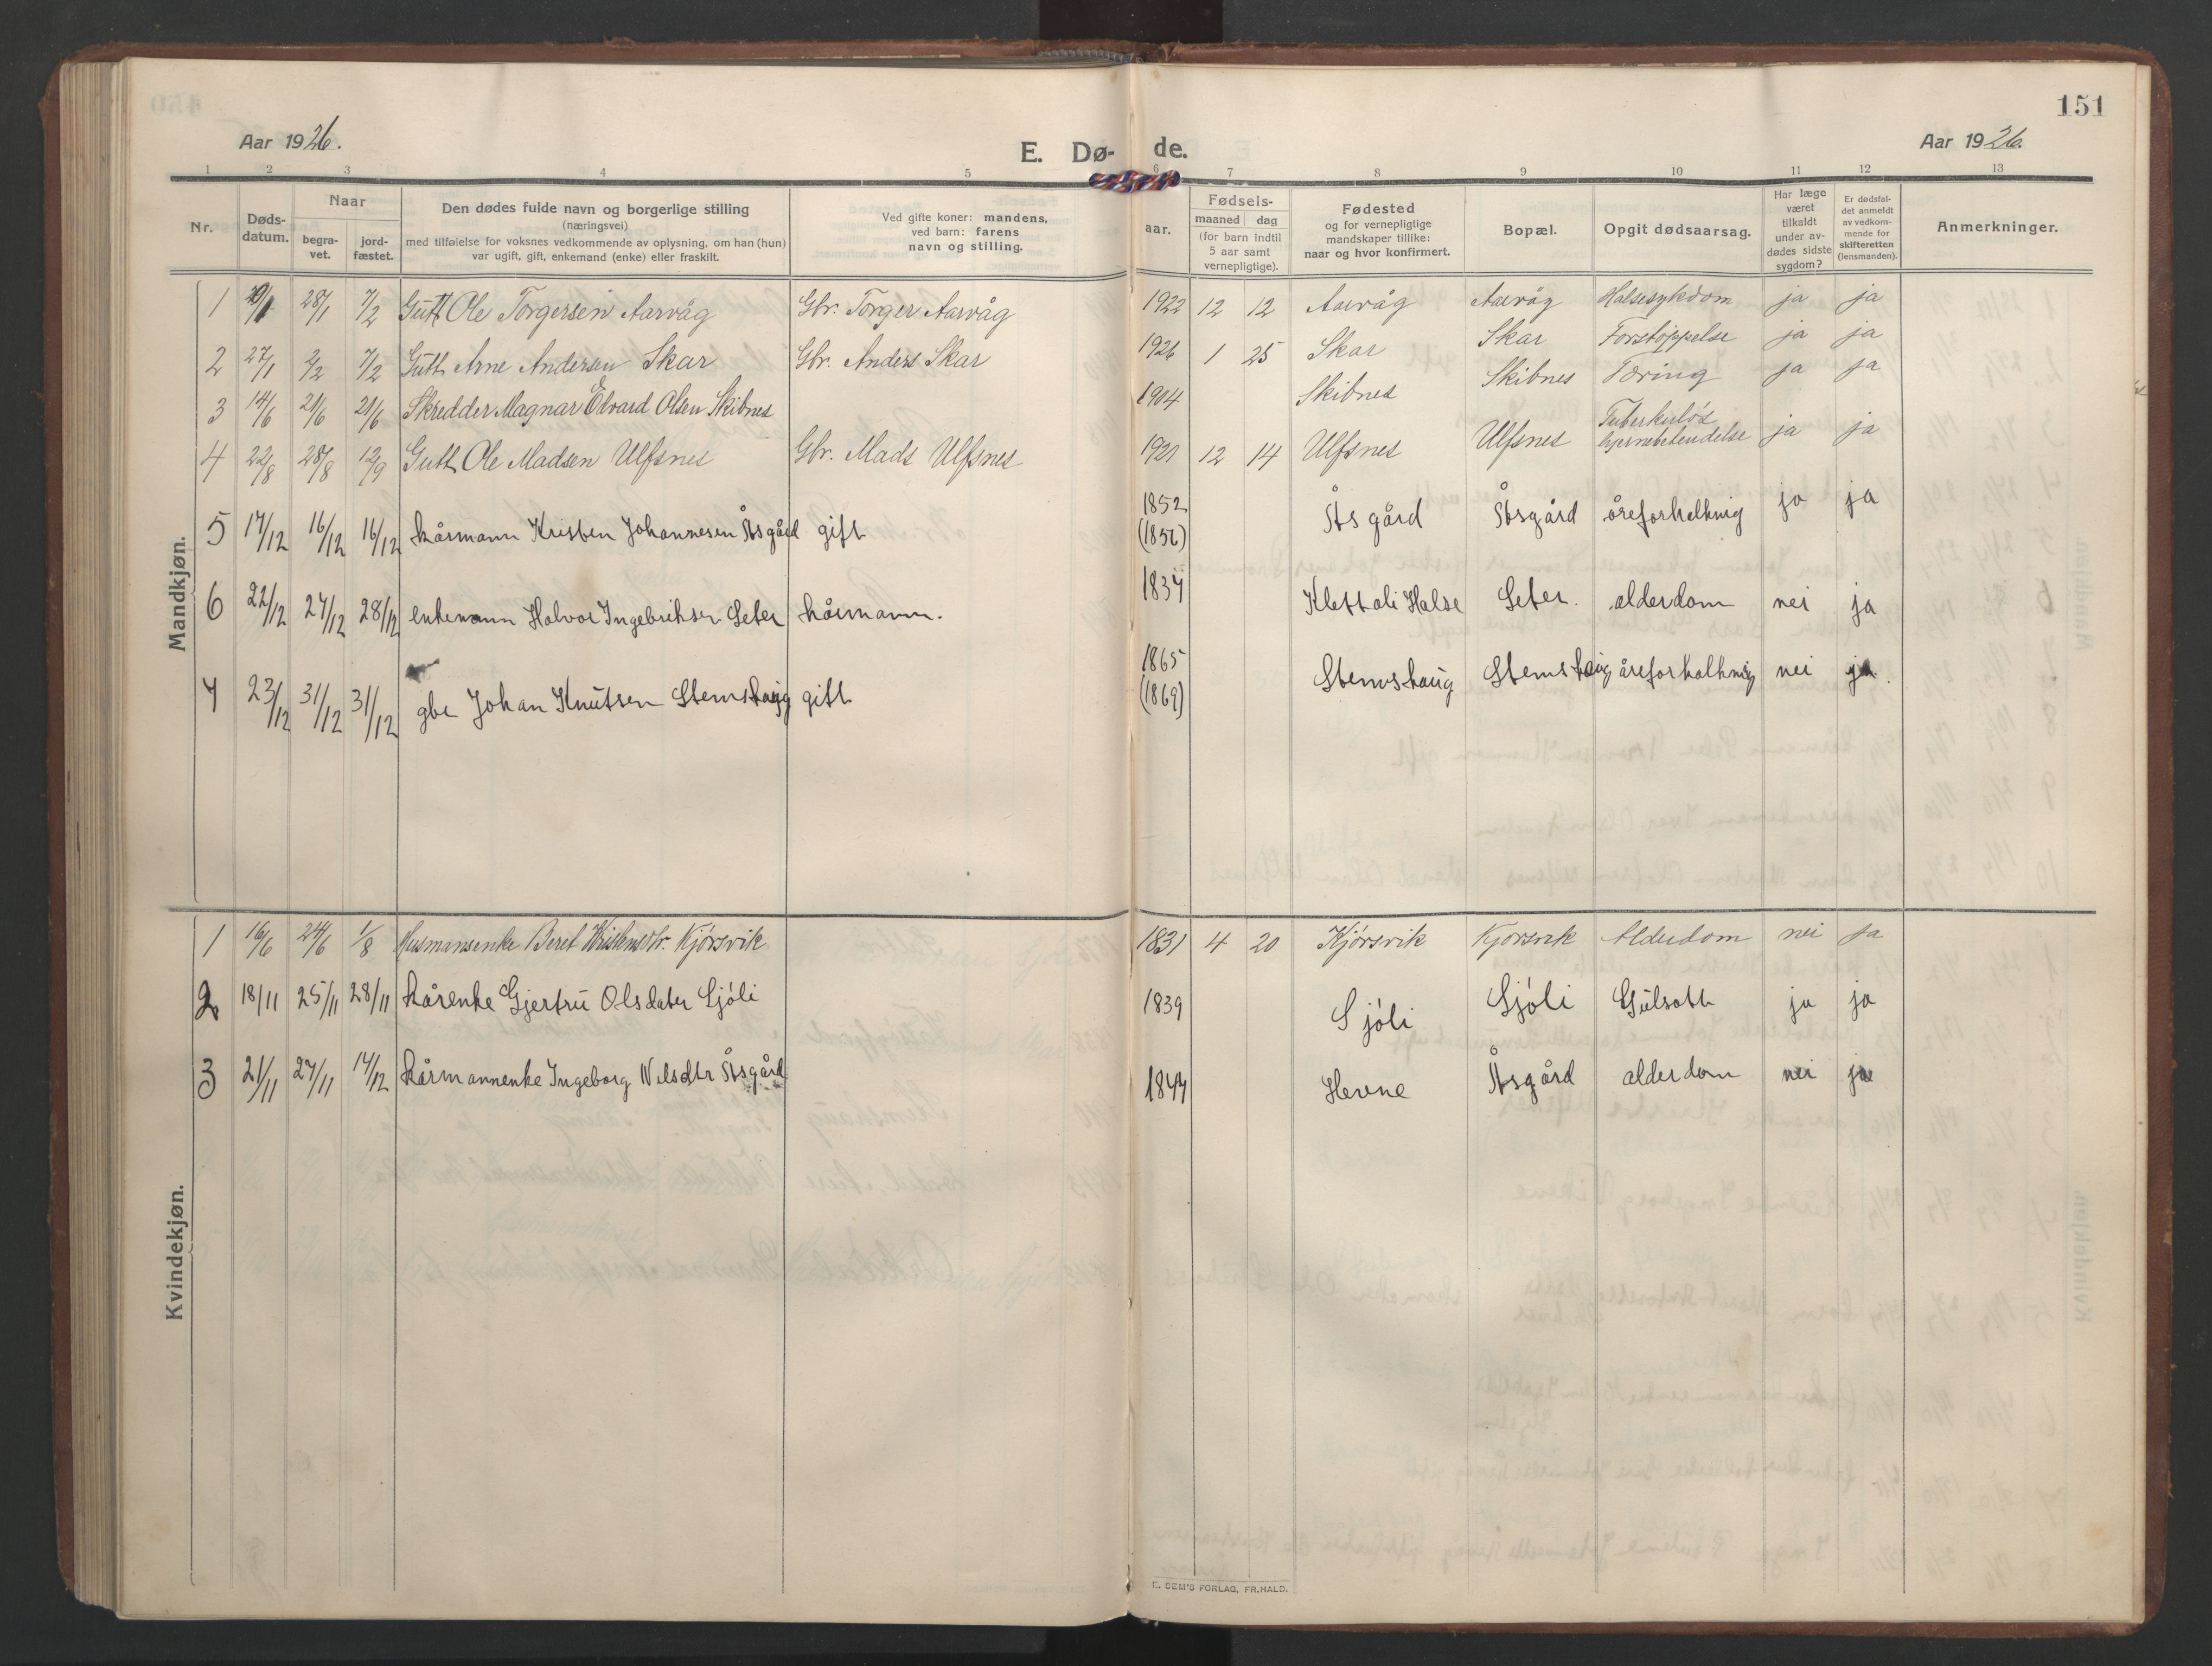 151
Aar 1926.
E. Dø- de.
Aar 1926.
1 2 3 4 5 6 7 8 9 10 11 12 13
Nr.
Døds-datum.
Naar
begra-vet.
jord-fæstet.
Den dødes fulde navn og borgerlige stilling
(næringsvei)
med tilføielse for voksnes vedkommende av oplysning, om han (hun)
var ugift, gift, enkemand (enke) eller fraskilt.
Ved gifte koner: mandens,
ved barn: farens
navn og stilling.
Fødsels-
aar.
maaned dag
(for barn indtil
5 aar samt
vernepligtige).
Fødested
og for vernepligtige
mandskaper tillike:
naar og hvor konfirmert.
Bopæl.
Opgit dødsaarsag.
Har læge
været
tilkaldt
under av-
dødes sidste
sygdom?
Er dødsfal-
det anmeldt
av vedkom-
mende for
skifteretten
(lensmanden).
Anmerkninger.
Mandkjøn.
1 28/1 7/2 Gutt Ole Torgersen Aarvåg Gbr. Torger Aarvåg 1922 12 12 Aarvåg Aarvåg Halsesykdom ja ja
2 27/1 2/2 7/2 Gutt Arne Andersen Skar Gbr. Anders Skar 1926 1 25 Skar Skar Forstoppelse ja ja
3 14/6 21/6 21/6 Skredder Magnar Edvard Olsen Skibnes 1904 Skibnes Skibnes Tæring ja ja
4 22/8 28/8 12/9 Gutt Ole Madsen Ulfsnes Gbr. Mads Ulfsnes 1921 12 14 Ulfsnes Ulfsnes Tuberkuløs hjernebetendelse ja ja
5 16/12 16/12 kårmann Kristen Johannesen Åsgård gift 1852 Åsgård Åsgård åreforkalkning ja ja
6 22/12 27/12 28/12 enkemann Halvor Ingebriksen Seter kårmann. 1837 Klettali Halse Seter. alderdom nei ja
7 23/12 31/12 31/12 gbr Johan Knutsen Stemshaug gift 1865 (1869) Stemshaug Stemshaug åreforkalkning nei ja.
Kvindekjøn.
1 16/6 24/6 1/8 Husmansenke Beret Kristensdtr. Kjörsvik 1831 4 20 Kjörsvik Kjörsvik Alderdom nei ja
2 18/11 25/11 28/11 kårenke Gjertru Olsdater Sjöli 1839 Sjöli Sjöli Gulsott ja ja
3 21/11 27/11 14/12 kårmannenke Ingeborg Nilsdtr Åsgård 1847 Hevne Åsgård alderdom nei ja
E. SEM'S FORLAG, FR.HALD.